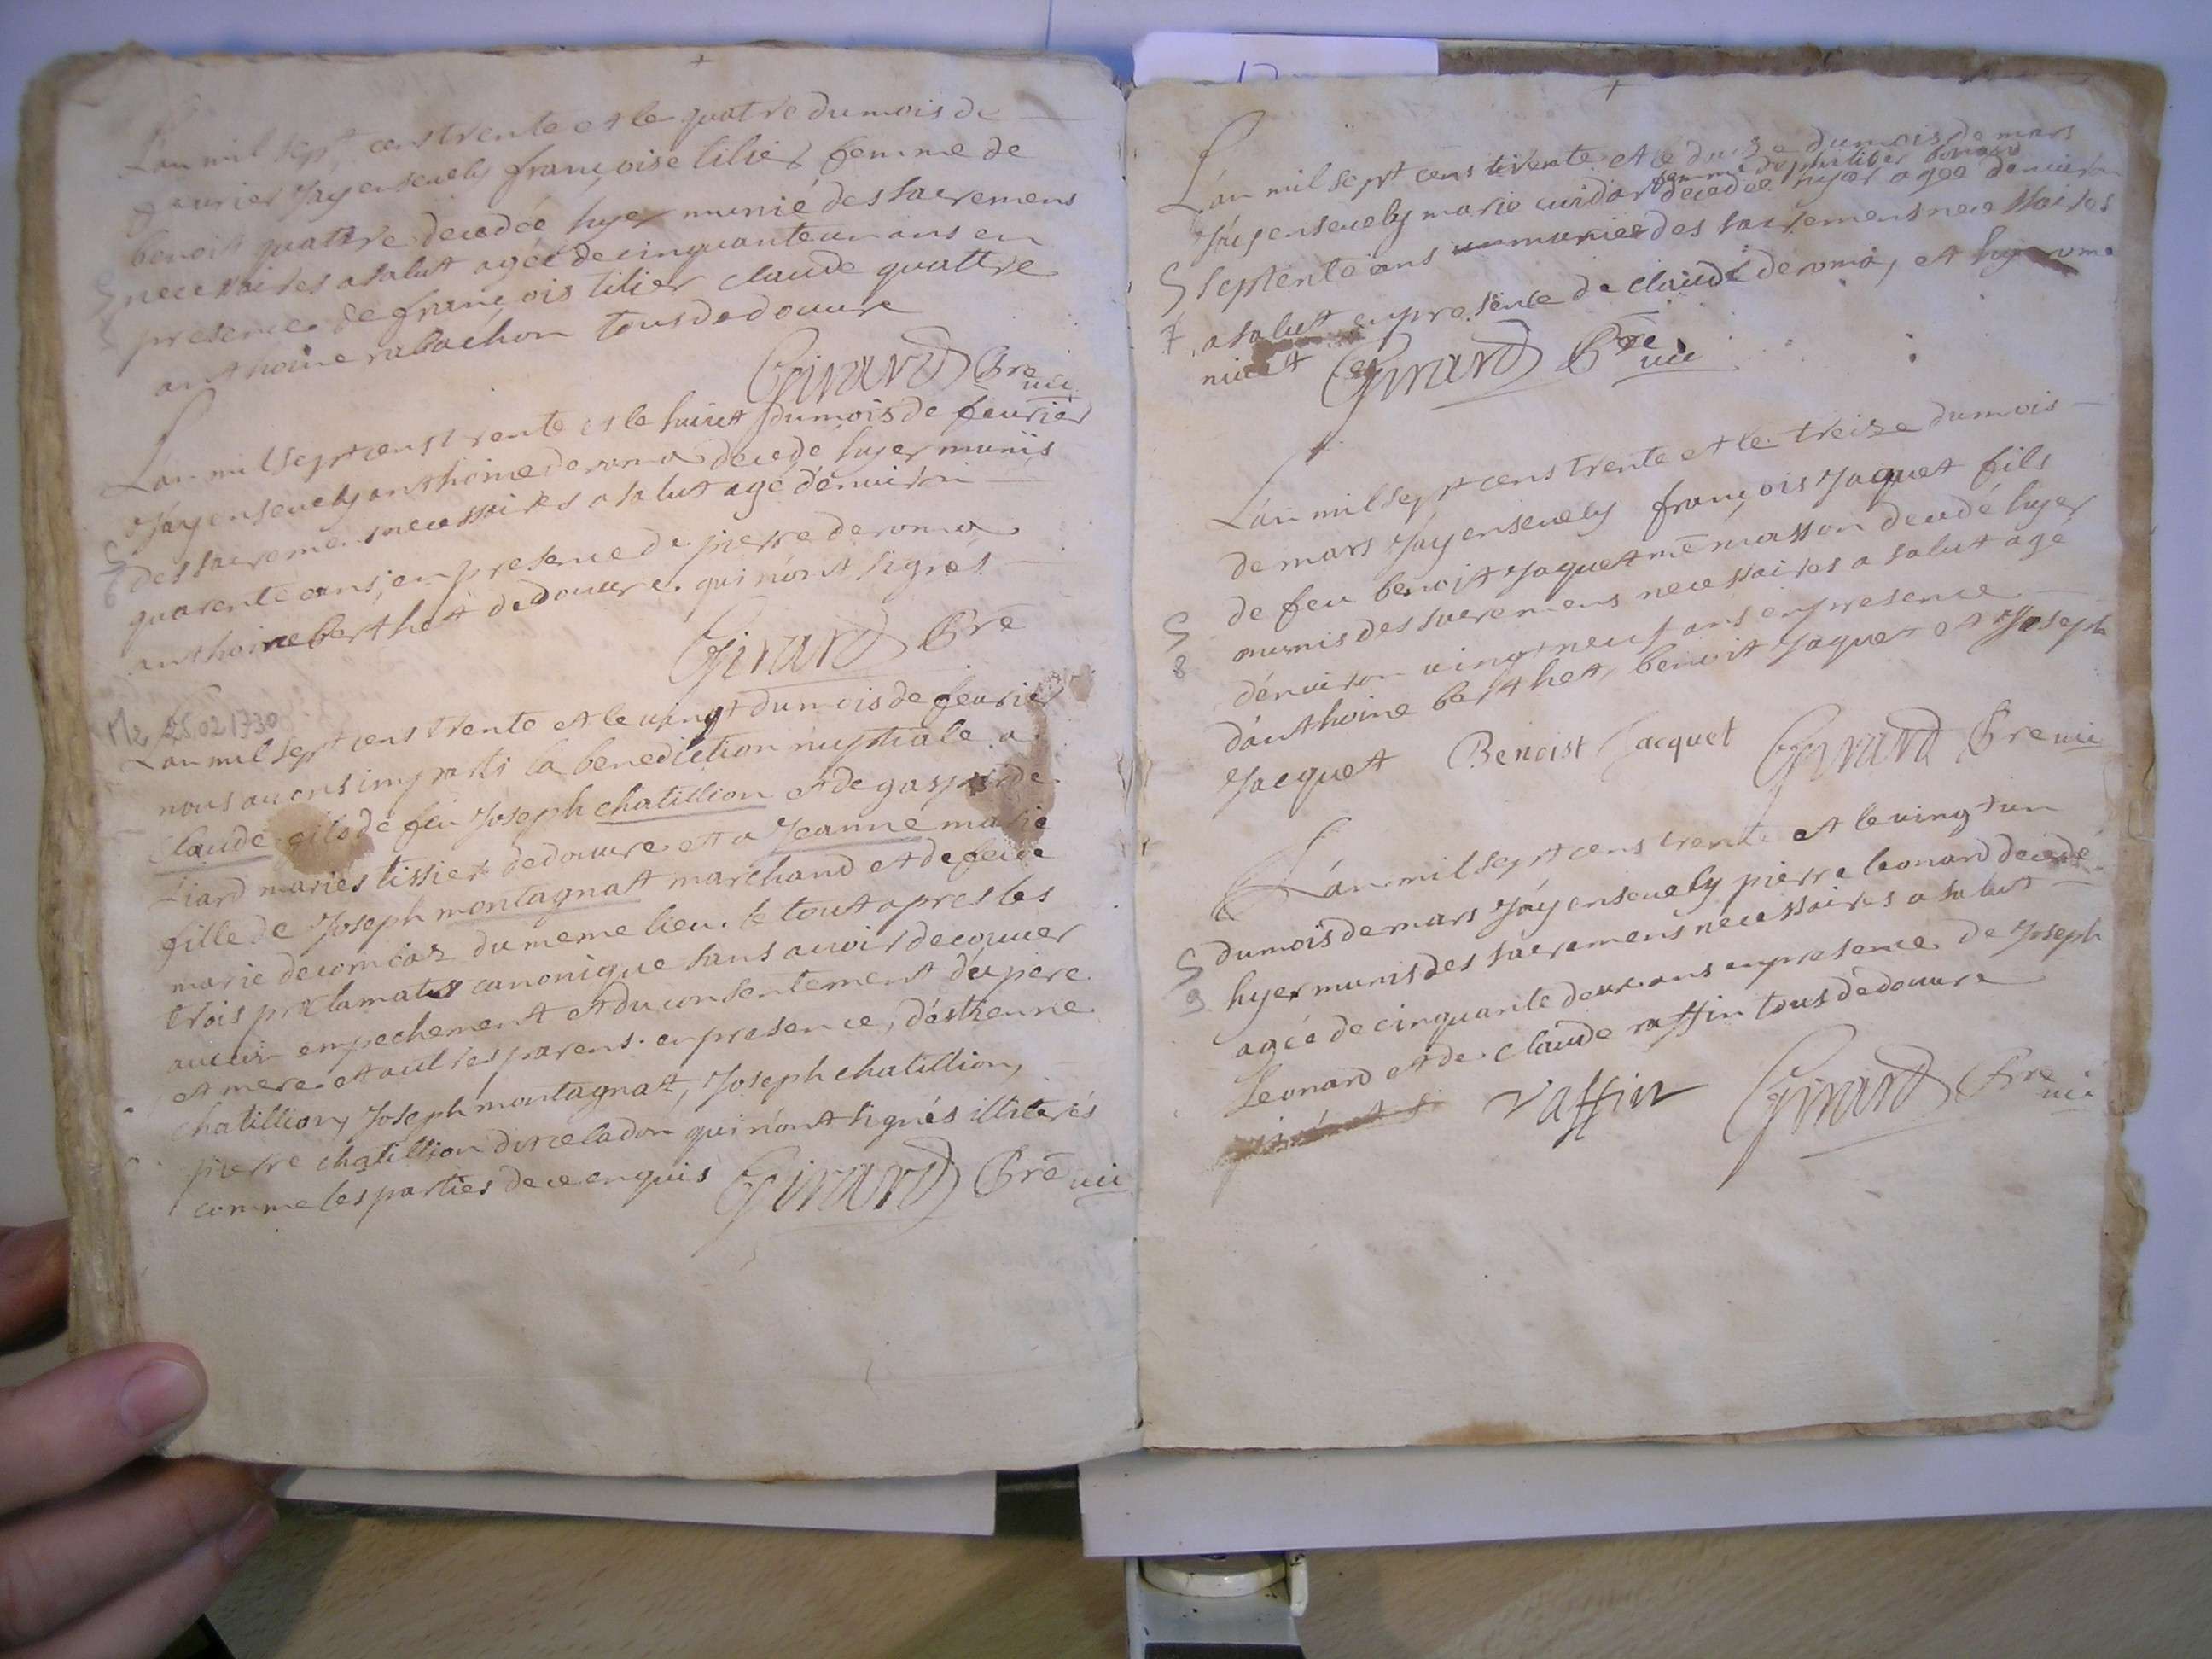 L'an mil sept cens trente et le quatre du mois de
feurier J'ay enseuely françoise tilier femme de
benoit quattre decedée hyer munié des sacremens
necessaires a salut agée de cinquante un ans en
presence de françois tilier claude quattre
anthoine rabachon tous de douure
Girard Bre vic
L'an mil sept cens trente et le huict du mois de feurier
J'ay enseuely anthoine deroma decedé hyer munis
des sacremens necessaires a salut agé d'enuiron
6
quarente ans, en presence de pierre deroma
anthoine berthet de douure qui n'ont signés
Girard Bre
25 02 1730
L'an mil sept cens trente et le vingt du mois de feurier
nous auons imparti la benediction nuptiale a
Claude fils de feu Joseph chatillion et de gasparde
liard mariés tissier de douure et a Jeanne marie
fille de Joseph montagnat marchand et de feue
marie decomcaz du meme lieu. le tout apres les
trois proclamates canonique sans auoir decouuer
aucun empechement et du consentement des pere
et mere et autres parens. en presence, d'estienne
chatillion, Joseph montagnat, Joseph chatillion,
pierre chatillion dit celadon qui n'ont signés illiterés
comme les parties de ce enquis Girard Bre vic
L'an mil sept cens trente et le douze du mois de mars
femme de philiber
J'ay enseuely marie decedée hyer agée d'enuiron
septente ans muniée des sacremens necessaires
7
a salut en presence de claude deroma, et hyerome
Girard Bre vic
L'an mil sept cens trente et le treize du mois
de mars J'ay enseuely françois Jaquet fils
de feu benoit Jaquet me masson decedé hyer
munis des sacremens necessaires a salut agé
8
d'enuiron vingt neuf ans en presence
d'anthoine berthet, benoit Jaquet et Joseph
Jacquet Benoist Jacquet Girard Bre vic
L'an mil sept cens trente et le vingt un
du mois de mars J'ay enseuely pierre leonard decedé
hyer munis des sacremens necessaires a salut
9
agée de cinquante deux ans en presence de Joseph
Leonard et de claude raffin tous de douure
raffin Girard Bre vic